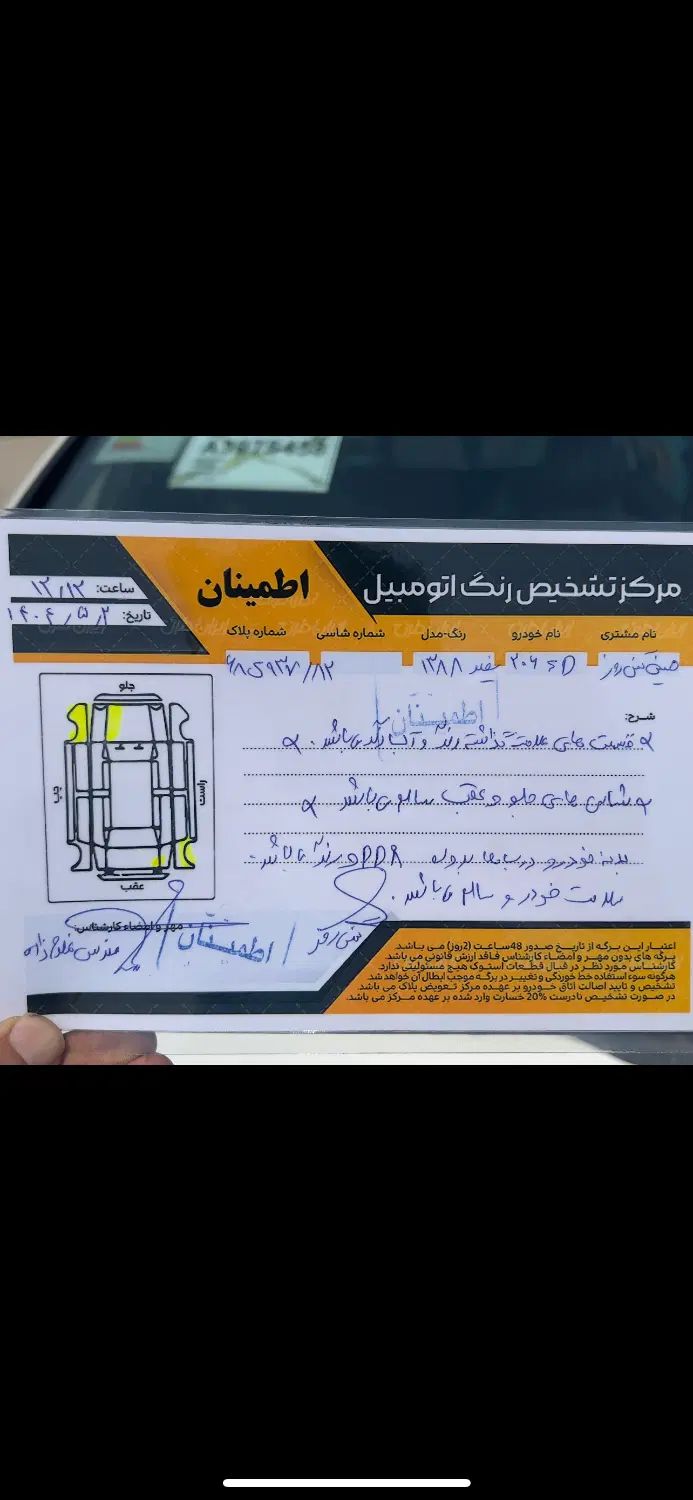 مرکز تشخیص رنگ اتومبیل
اطمینان
ساعت: ۱۲٫۱۲
تاریخ: ۱۴۰۴٫۵٫۲
نام مشتری
نام خودرو
رنگ-مدل
شماره شاسی
شماره پلاک
۲۰۶ SD
سفید ۱۳۸۸
شرح:
اطمینان
قسمت های علامت گذاشته رنگ و آبرنگ می باشد.
شاسی های جلو و عقب سالم می باشد
بدنه خودرو در جاها بدون PDR و رنگ می باشد.
سلامت خودرو سالم می باشد.
جلو
چپ
راست
عقب
مهر و امضاء کارشناس:
اطمینان
اعتبار این برگه از تاریخ صدور 48ساعت (2روز) می باشد.
برگه های بدون مهر و امضاء کارشناس فاقد ارزش قانونی می باشد.
کارشناس مورد نظر در قبال قطعات استوک هیچ مسئولیتی ندارد.
هرگونه سوء استفاده خط خوردگی و تغییر در برگه موجب ابطال آن خواهد شد.
تشخیص و تایید اصالت اتاق خودرو بر عهده مرکز تعویض پلاک می باشد.
در صورت تشخیص نادرست 20% خسارت وارد شده بر عهده مرکز می باشد.